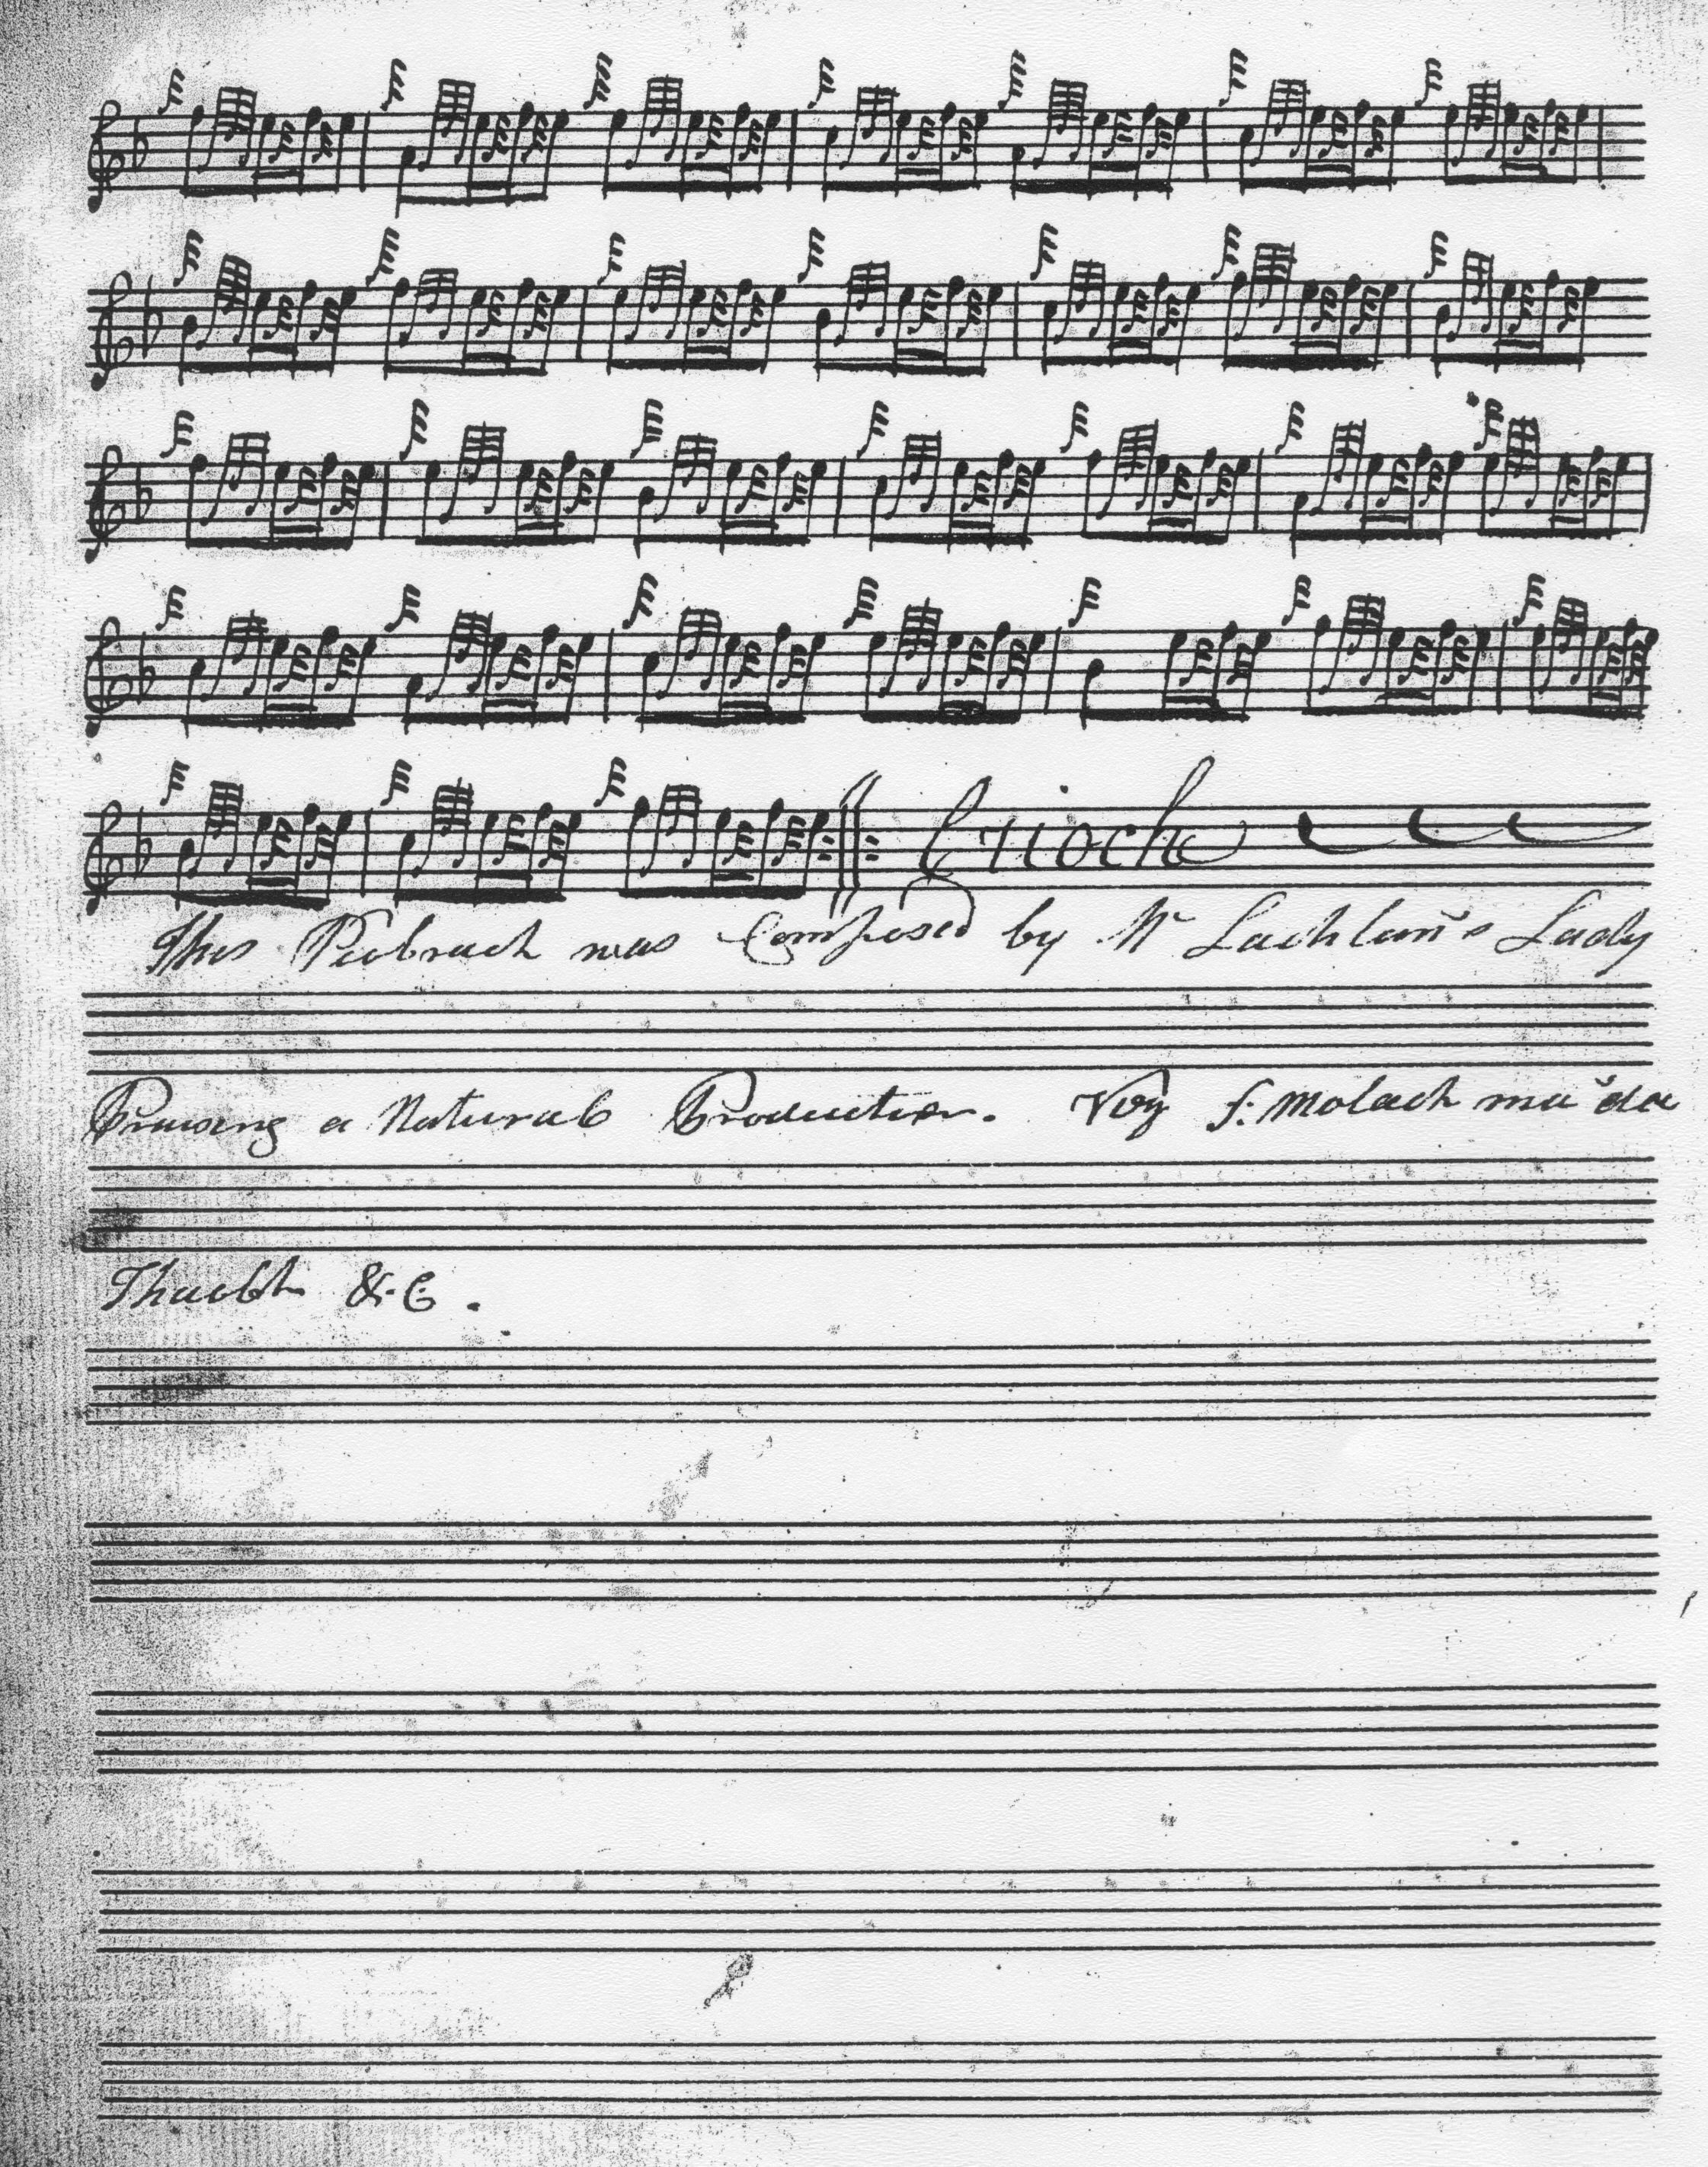 Crioch
This Piobrach was Composed by Mr Lachlan's Lady
Praising a Natural Production. f: molach ma da
&.C.